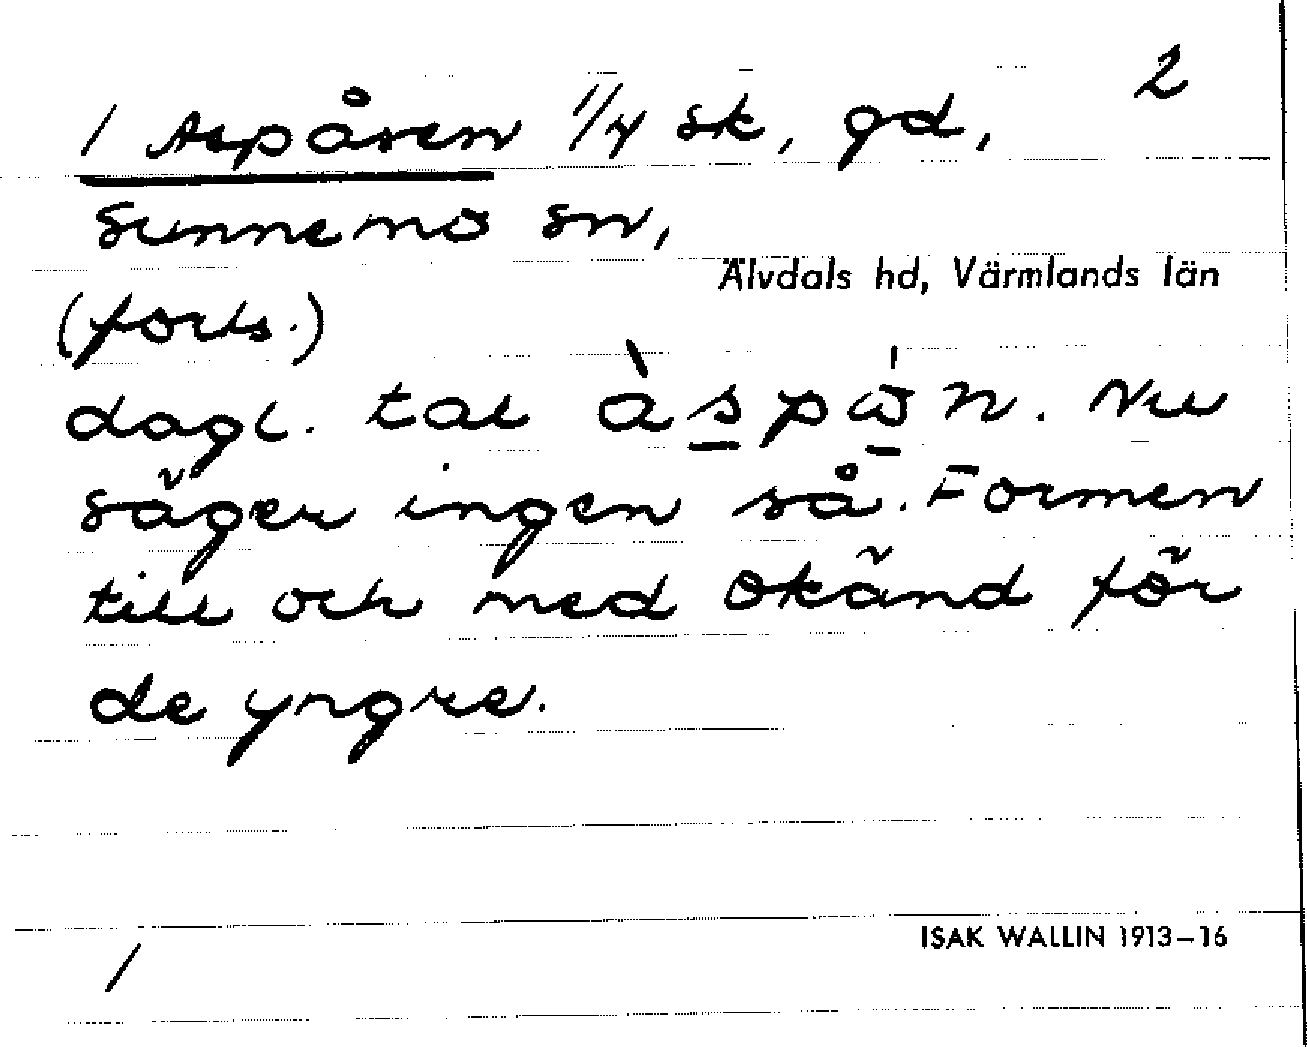 2
1 Aspåsen 1/4 sk, gd,
Sunnemo sn,
Älvdals hd, Värmlands län
(forts.)
dagl. tal àspåsn. Nu
säger ingen så. Formen
till och med okänd för
de yngre.
ISAK WALLIN 1913–16
/